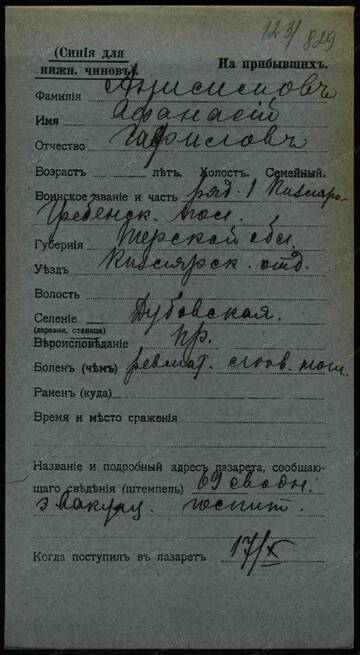 123/829
(Синія для
нижн. чиновъ).
На прибывшихъ.
Фамилія Анисимовъ
Имя Афанасій
Отчество Гавриловъ
Возрастъ лѣтъ. Холост. Семейный.
Воинское званіе и часть ряд. 1 Кизляро-
Гребенск. пол.
Губернія Терской обл.
Уѣздъ Кизлярск. отд.
Волость
Селеніе Дубовская.
(деревня, станица)
Вѣроисповѣданіе пр.
Боленъ (чѣмъ) ревмат.
Раненъ (куда)
Время и мѣсто сраженія
Названіе и подробный адресъ лазарета, сообщаю-
щаго свѣдѣнія (штемпель) 69 сводн.
эвакуац. госпит.
Когда поступилъ въ лазаретъ 17/X